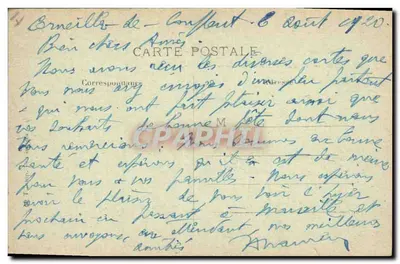 Corneilla-de-Conflent 6 août 1920.
Bien chers Amis,
CARTE POSTALE
Nous avons reçu les diverses cartes que
Correspondance
vous nous avez envoyées d'un peu partout
qui nous ont fait plaisir ainsi que
vos souhaits de bonne fête dont nous
M
CPARAMA
vous remercions. Nous sommes en bonne
santé et espérons qu'il en est de même
pour vous et vos familles. Nous espérons
avoir le plaisir de vous voir l'hiver
prochain en passant à Marseille et
vous envoyons, en attendant, nos meilleures
amitiés